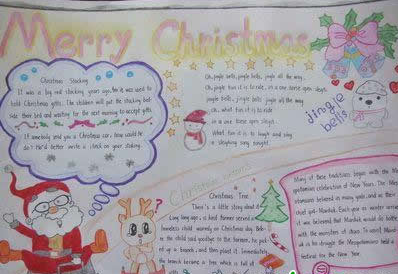 Merry Christmas
Christmas Stocking
It was a big red stocking years ago. An it was used to
hold Christmas gifts. The children will put the stocking bet-
side their bed and waiting for the next morning to accept gifts.
If somebody send you a Christmas car, how would he
do? He'd better write a check on your stoking.
Oh, jingle bells, jingle bells, jingle all the way.
Oh, what fun it is to ride, in a one horse open sleigh
jingle bells, jingle bells, jingle all the way
Oh, what fun it is to ride
In a one horse open sleigh
What fun it is to laugh and sing
a sleighing song tonight.
jingle
bells
Christmas customs
Christmas Tree
There is a little story about it
Long long ago, a kind farmer served a
homeless child warmly on Christmas day. Befo-
re the child said goodbye to the farmer, he put
up a branch, and then placed it. Immediately
the branch became a tree, which is full of
Many of these traditions began with the Me-
sopotamian celebration of New Years. The Mes
opotamians believed in many gods, and as their
chief god-Marduk. Each year as winter arrived
it was believed that Marduk would do battle
with the monsters of chaos. To assist Mardu-
k in his struggle the Mesopotamians held a
festival for the New Year.
?